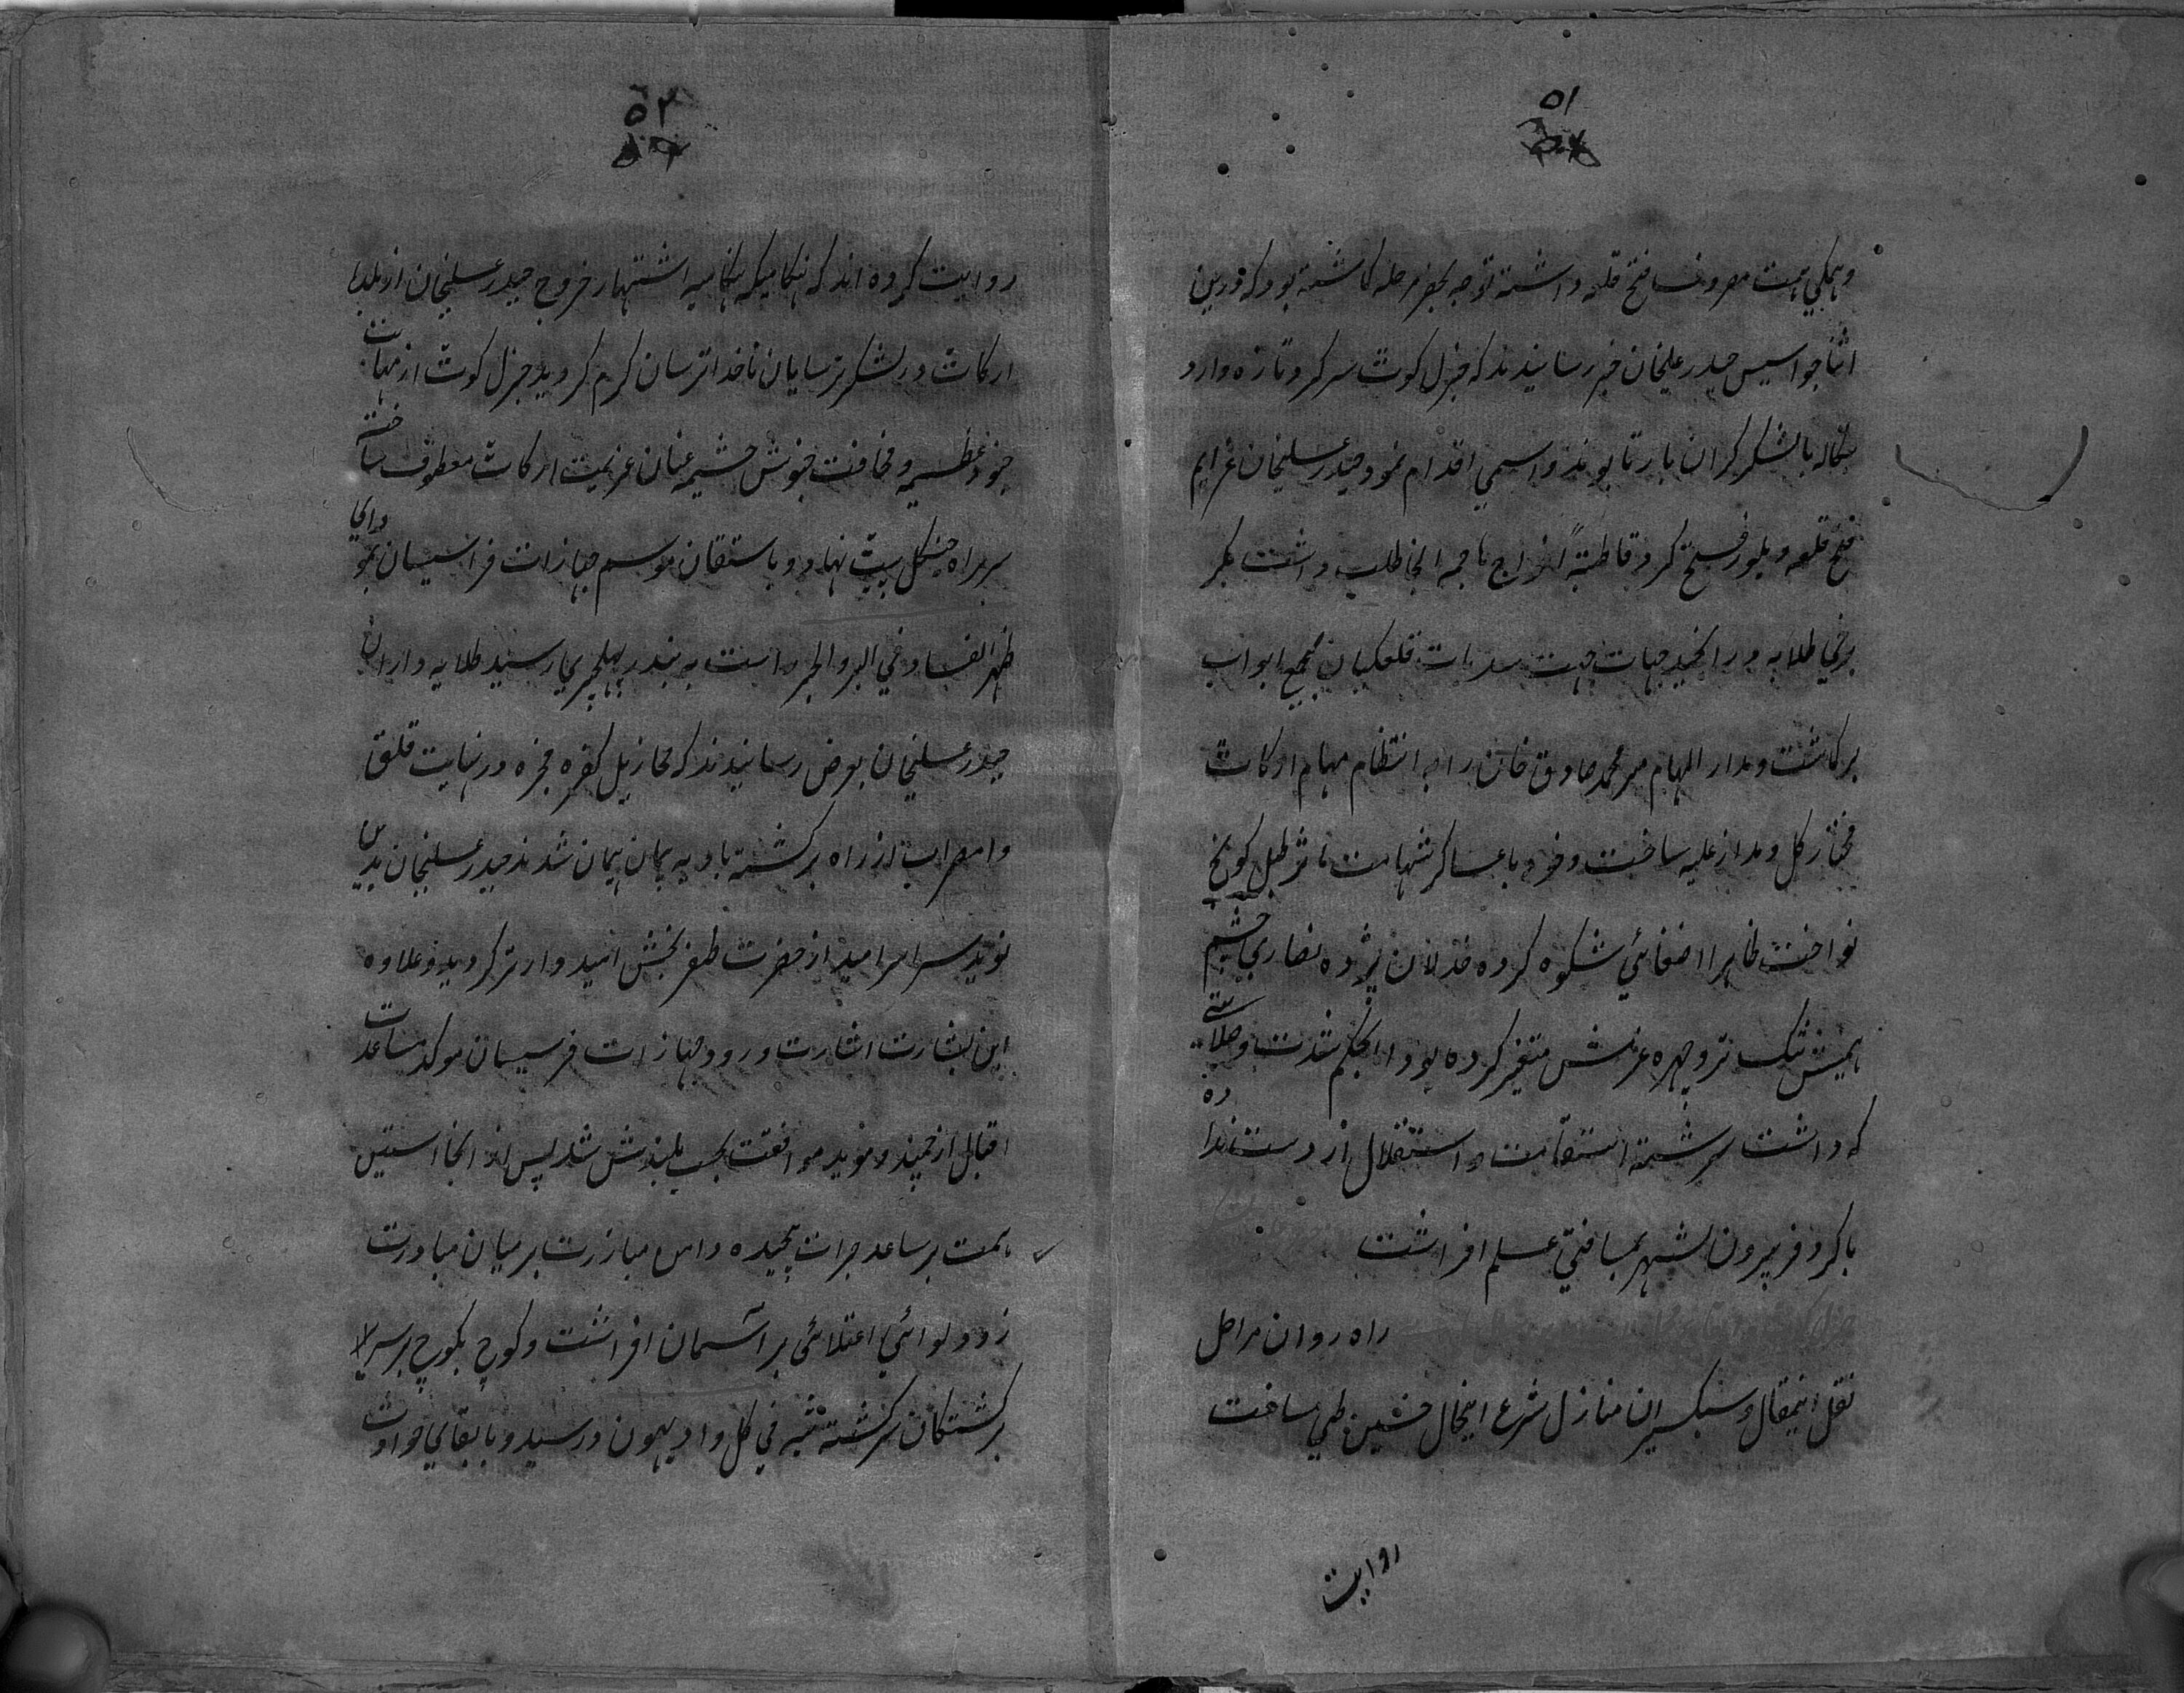 ۵۱
وهمگي همت مصروف فتح قلعه داشته توجه بحفر مرحله گماشته بود که درین
اثنا جواسیس حیدر علیخان خبر رسانیدند که جنرل کوٹ سرکرد تازه وارد
بنگاله با لشکر گران بار تا پوند واسي اقدام نمود حیدر علیخان عزایم
فتح قلعه ویلور فسخ کرد قاطبة افواج ناحیه انجا طلب داشت مگر
برخي طلایه را بجهت قلعگیان بجمیع ابواب
برگماشت و مدار المهام میر محمد صادق خان را به انتظام مهام ارکاٹ
مختار کل و مدار علیه ساخت و خود با عساکر شهامت ماثر طبل کوچ
نواخت ظاهرا شکوه کرده خذلان پژوه نصاري چشم
همتش تنگ تر و چهره عزمش متغیر کرده بود اما بحکم شدت و صلابتے
که داشت سررشته استقامت و استقلال از دست نداده
با کر و فر بیرون شهر بمسافتي علم افراشت
راه روان مراحل
نقل اینمقال و سبکسیران منازل شرع اینحال چنین طي ساخت
روایت
۵۲
روایت کرده اند که هنگامیکه هنگامه اشتهار خروج حیدر علیخان از بلده
ارکاٹ در لشکر ترسایان ناخدا ترسان گرم گردید جنرل کوٹ از مهابت
جنود عظیمه و مخافت جوش حشمه عنان عزیمت ارکاٹ معطوف ساخته
سر براه جنگل پیٹ نهاد و باستقان موسم جهازات فرانسیسان بموداي
ظهر الفساد في البر والبحر راست به بندر پهلچري رسید طلایه داران
حیدر علیخان بعرض رسانیدند که مخازیل کفره فجره در نهایت قلق
و اضطراب از راه برگشته بادیه پیمان شدند حیدر علیخان بدین
نوید سراسر امید از حضرت ظفر بخش امیدوارتر گردید و علاوه
این بشارت اشارت ورود جهازات فرسیسان موکد مساعدت
اقبال ارجمند و موید موافقت بخت بلندش شد پس از انجا استین
همت بر ساعد جرات پیچیده دامن مبارزت بر میان مبادرت
زد و لوائي اعتلائي بر آسمان افراشت و کوچ بکوچ بر سر
برگشتگان سرگشته تیه في کل واد یهیمون در رسید و بابقاي حوادث